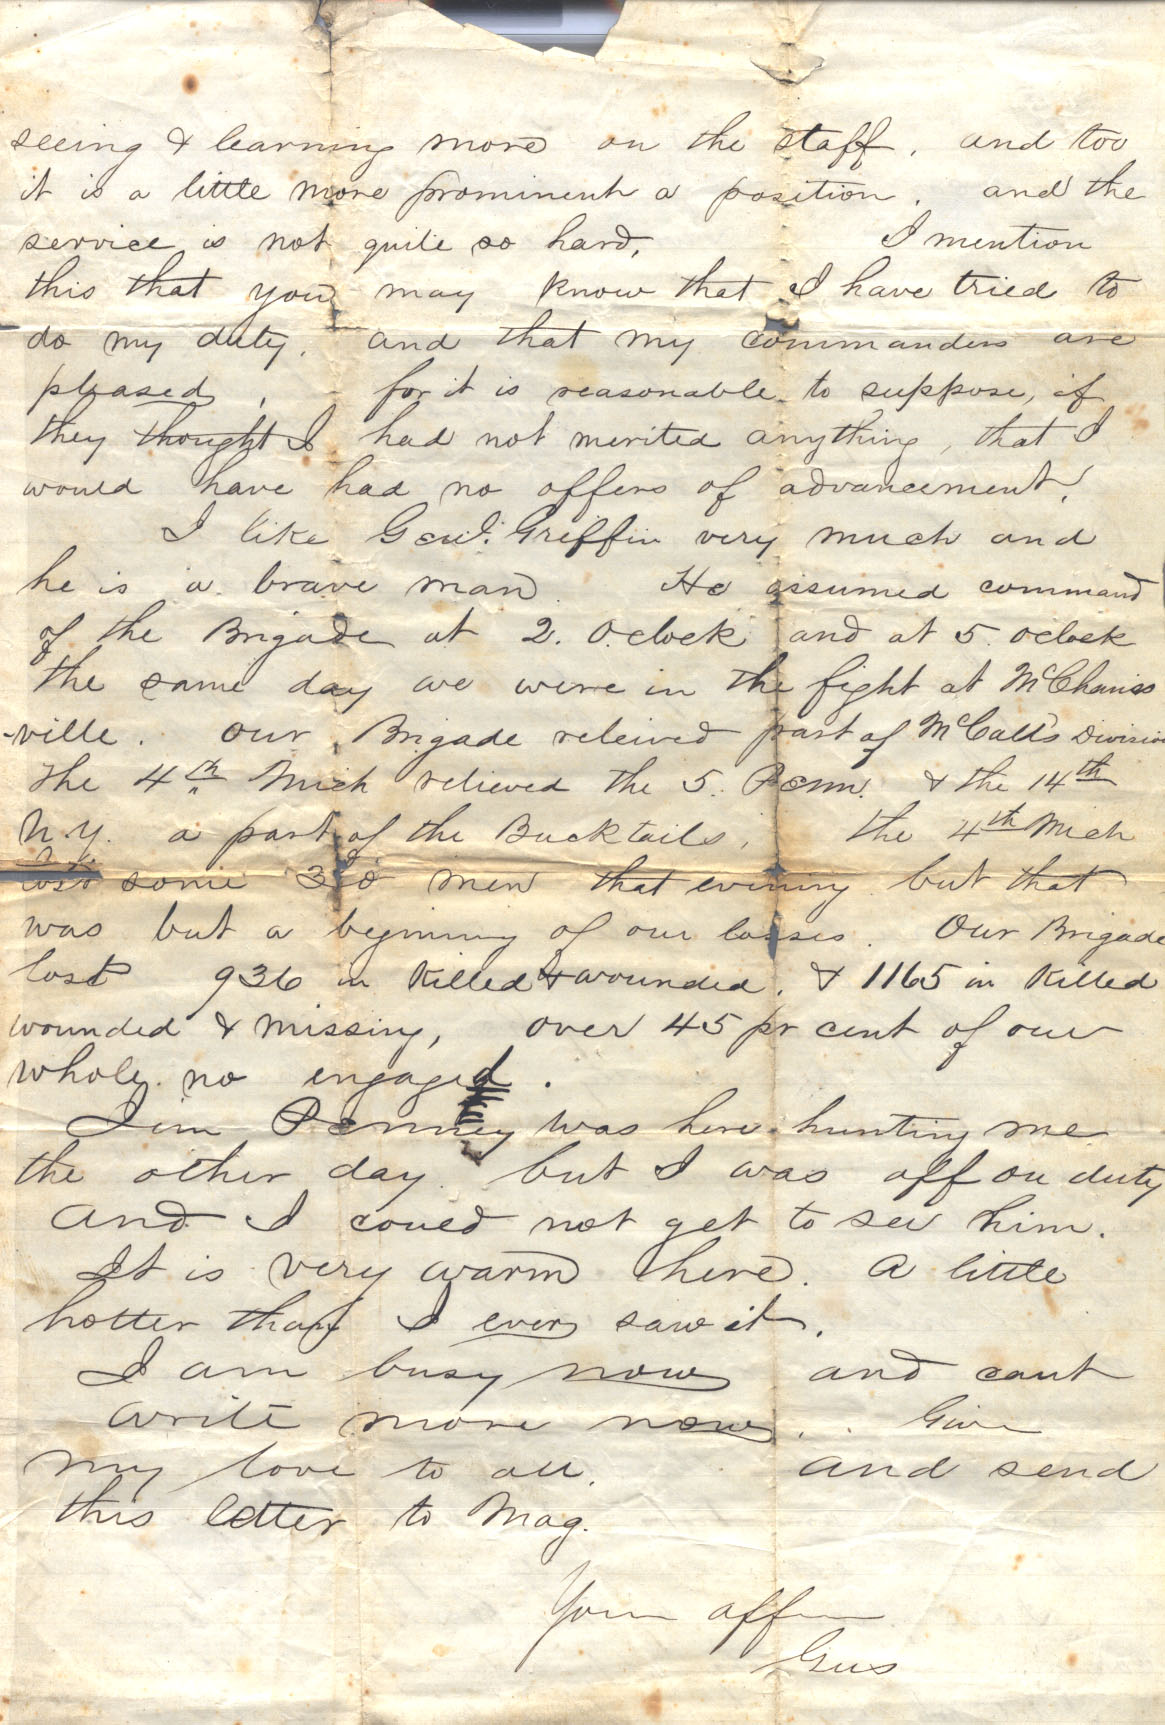 seeing & learning more on the staff. and too
it is a little more prominent a position. and the
service is not quite so hard, I mention
this that you may know that I have tried to
do my duty. and that my commanders are
pleased, for it is reasonable to suppose, if
they thought I had not merited anything, that I
would have had no offers of advancement.
I like Genl. Griffin very much and
he is a brave man. He assumed command
of the Brigade at 2. Oclock and at 5 oclock
the same day we were in the fight at McChanics
-ville. Our Brigade releived part of McCall's Division
The 4th Mich relieved the 5. Penn. & the 14th
N.Y. a part of the Bucktails, the 4th Mich
lost some 30 men that evening but that
was but a begining of our losses. Our Brigade
lost 936 in Killed & wounded. & 1165 in Killed
wounded & missing, over 45 pr cent of our
whole no engaged.
Jim Penney was here hunting me
the other day but I was off on duty
and I could not get to see him.
It is very warm here. A little
hotter than I ever saw it.
I am busy now and cant
write more now. Give
my love to all. and send
this letter to Mag.
Your affn
Gus